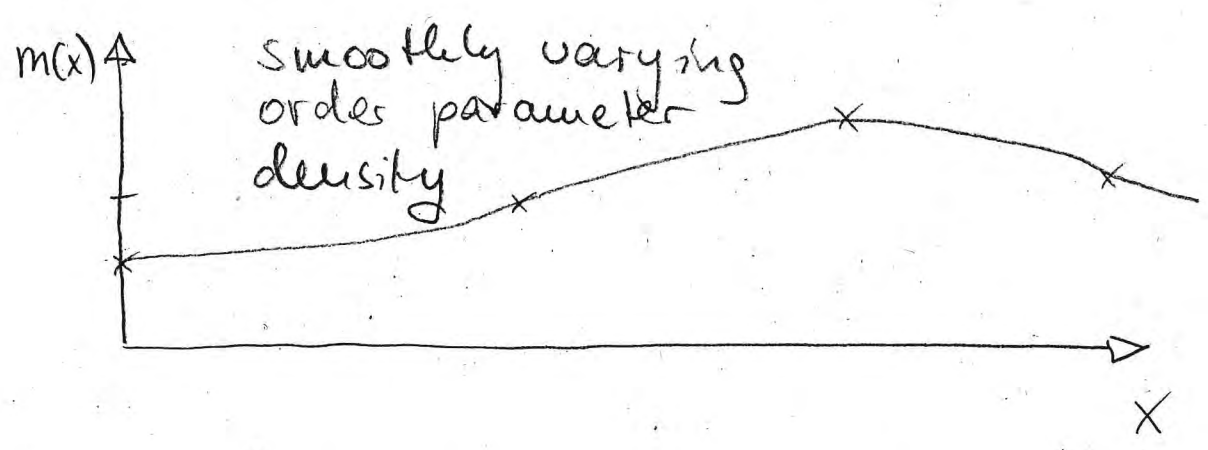 m(x)
smoothly varying
order parameter
density
x